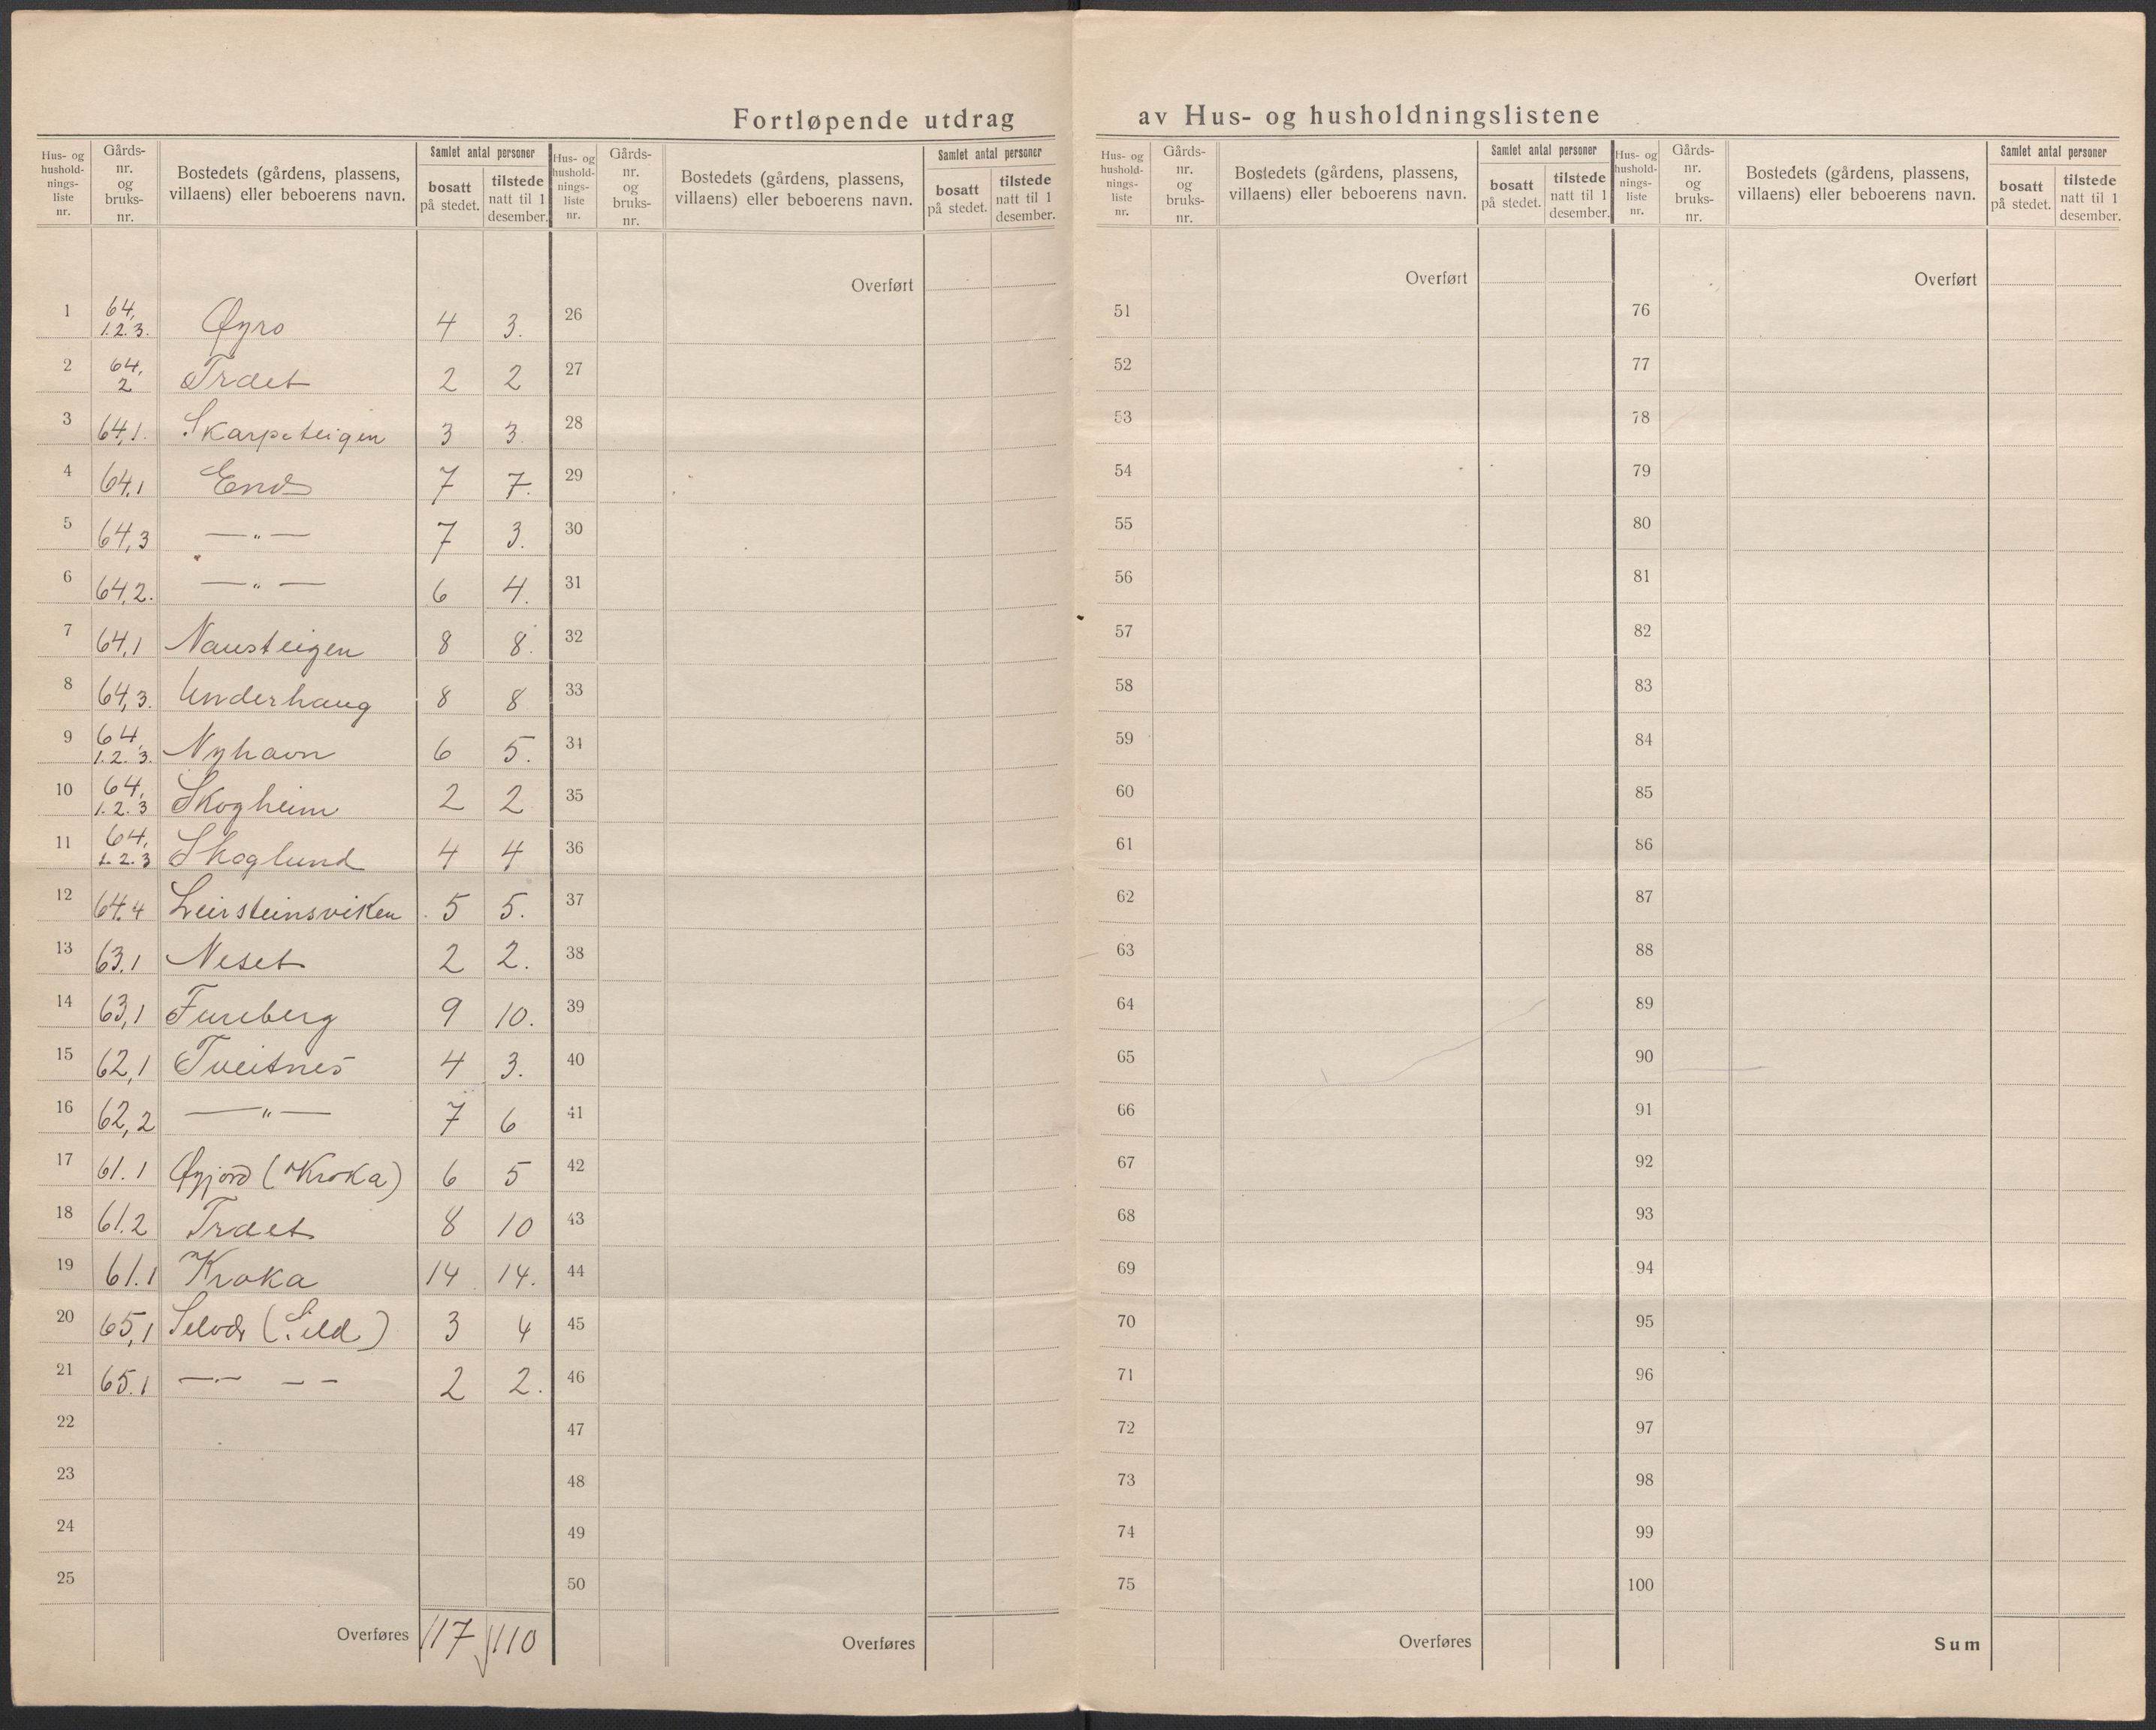 Fortløpende utdrag av Hus- og husholdningslistene
Hus- og husholdningsliste nr. | Gårds-nr. og bruks-nr. | Bostedets (gårdens, plassens, villaens) eller beboerens navn. | Samlet antal personer | bosatt på stedet. | tilstede natt til 1 desember.
1 64, 1. 2. 3. Øyro 4 3.
2 64, 2 Trået 2 2
3 64,1. Skarpeteigen 3 3
4 64,1 End 7 7.
5 64,3 — „ — 7 3.
6 64,2. — „ — 6 4.
7 64,1 Nausteigen 8 8.
8 64,3. Underhaug 8 8
9 64, 1. 2. 3. Nyhavn 6 5.
10 64, 1. 2. 3 Skogheim 2 2
11 64, 1. 2. 3 Skoglund 4 4
12 64.4 Leirsteinsviken 5 5.
13 63.1 Neset 2 2.
14 63,1 Fureberg 9 10.
15 62,1 Tveitnes 4 3.
16 62,2 — „ — 7 6
17 61.1 Øyjord (Kroka) 6 5
18 61.2 Trået 8 10
19 61.1 Kroka 14 14.
20 65,1 (Sild) 3 4
21 65.1 — „ — — — 2 2.
22
23
24
25
Overføres 117 110
Hus- og husholdningsliste nr. | Gårds-nr. og bruks-nr. | Bostedets (gårdens, plassens, villaens) eller beboerens navn. | Samlet antal personer | bosatt på stedet. | tilstede natt til 1 desember.
Overført
26
27
28
29
30
31
32
33
34
35
36
37
38
39
40
41
42
43
44
45
46
47
48
49
50
Overføres
Hus- og husholdningsliste nr. | Gårds-nr. og bruks-nr. | Bostedets (gårdens, plassens, villaens) eller beboerens navn. | Samlet antal personer | bosatt på stedet. | tilstede natt til 1 desember.
Overført
51
52
53
54
55
56
57
58
59
60
61
62
63
64
65
66
67
68
69
70
71
72
73
74
75
Overføres
Hus- og husholdningsliste nr. | Gårds-nr. og bruks-nr. | Bostedets (gårdens, plassens, villaens) eller beboerens navn. | Samlet antal personer | bosatt på stedet. | tilstede natt til 1 desember.
Overført
76
77
78
79
80
81
82
83
84
85
86
87
88
89
90
91
92
93
94
95
96
97
98
99
100
Sum